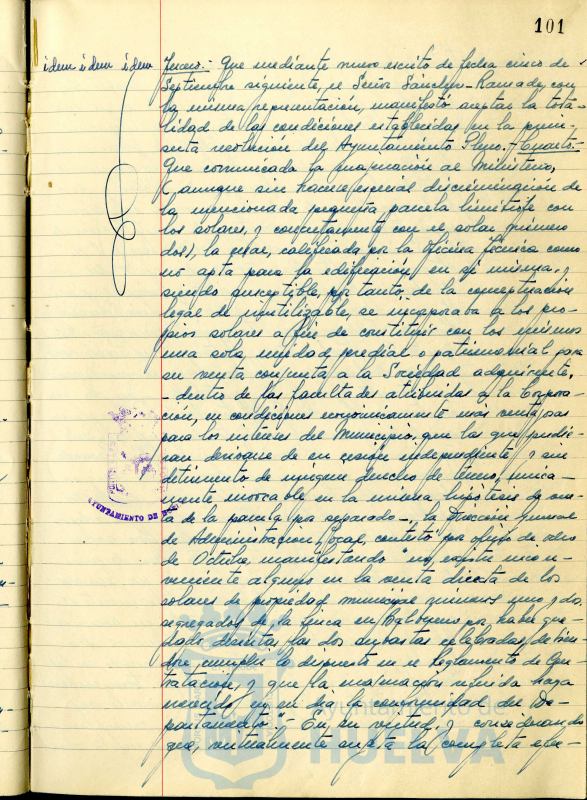 101
idem idem idem
Tercero.- Que mediante nuevo escrito de fecha cinco de
Septiembre siguiente, el Señor Sánchez-Ramade, con
la misma representación, manifestó aceptar la tota-
lidad de las condiciones establecidas en la
resolución del Ayuntamiento Pleno.- Cuarto.-
Que comunicada la enajenación al Ministerio,
(aunque sin hacerse especial discriminación de
la mencionada pequeña parcela limítrofe con
los solares, y concretamente con el solar número
dos), la cual, calificada por la Oficina Técnica como
no apta para la edificación en sí misma, y
siendo susceptible, por tanto, de la conceptuación
legal de inutilizable, se incorporaba a los pro-
pios solares a fin de constituir con los mismos
una sola unidad predial o patrimonial para
su venta conjunta a la Sociedad adquirente,
- dentro de las facultades atribuidas a la Corpora-
ción, en condiciones económicamente más ventajosas
para los intereses del Municipio, que las que pudie-
ran derivarse de su cesión independiente, y sin
detrimento de ningún derecho de tercero, única-
mente invocable en la misma hipótesis de ven-
ta de la parcela por separado-, la Dirección General
de Administración Local, contestó por oficio de
de Octubre, manifestando "no existe incon-
veniente alguno en la venta directa de los
solares de propiedad municipal números uno y dos
segregados de la finca en por haber que-
dado desiertas las dos subastas celebradas, de
cumplir lo dispuesto en el Reglamento de Con-
tratación, y que la enajenación referida haya
merecido en su día la conformidad del De-
partamento".- En su virtud, y considerando
que, ventualmente la completa
AYUNTAMIENTO DE
Ayuntamiento de
HUELVA